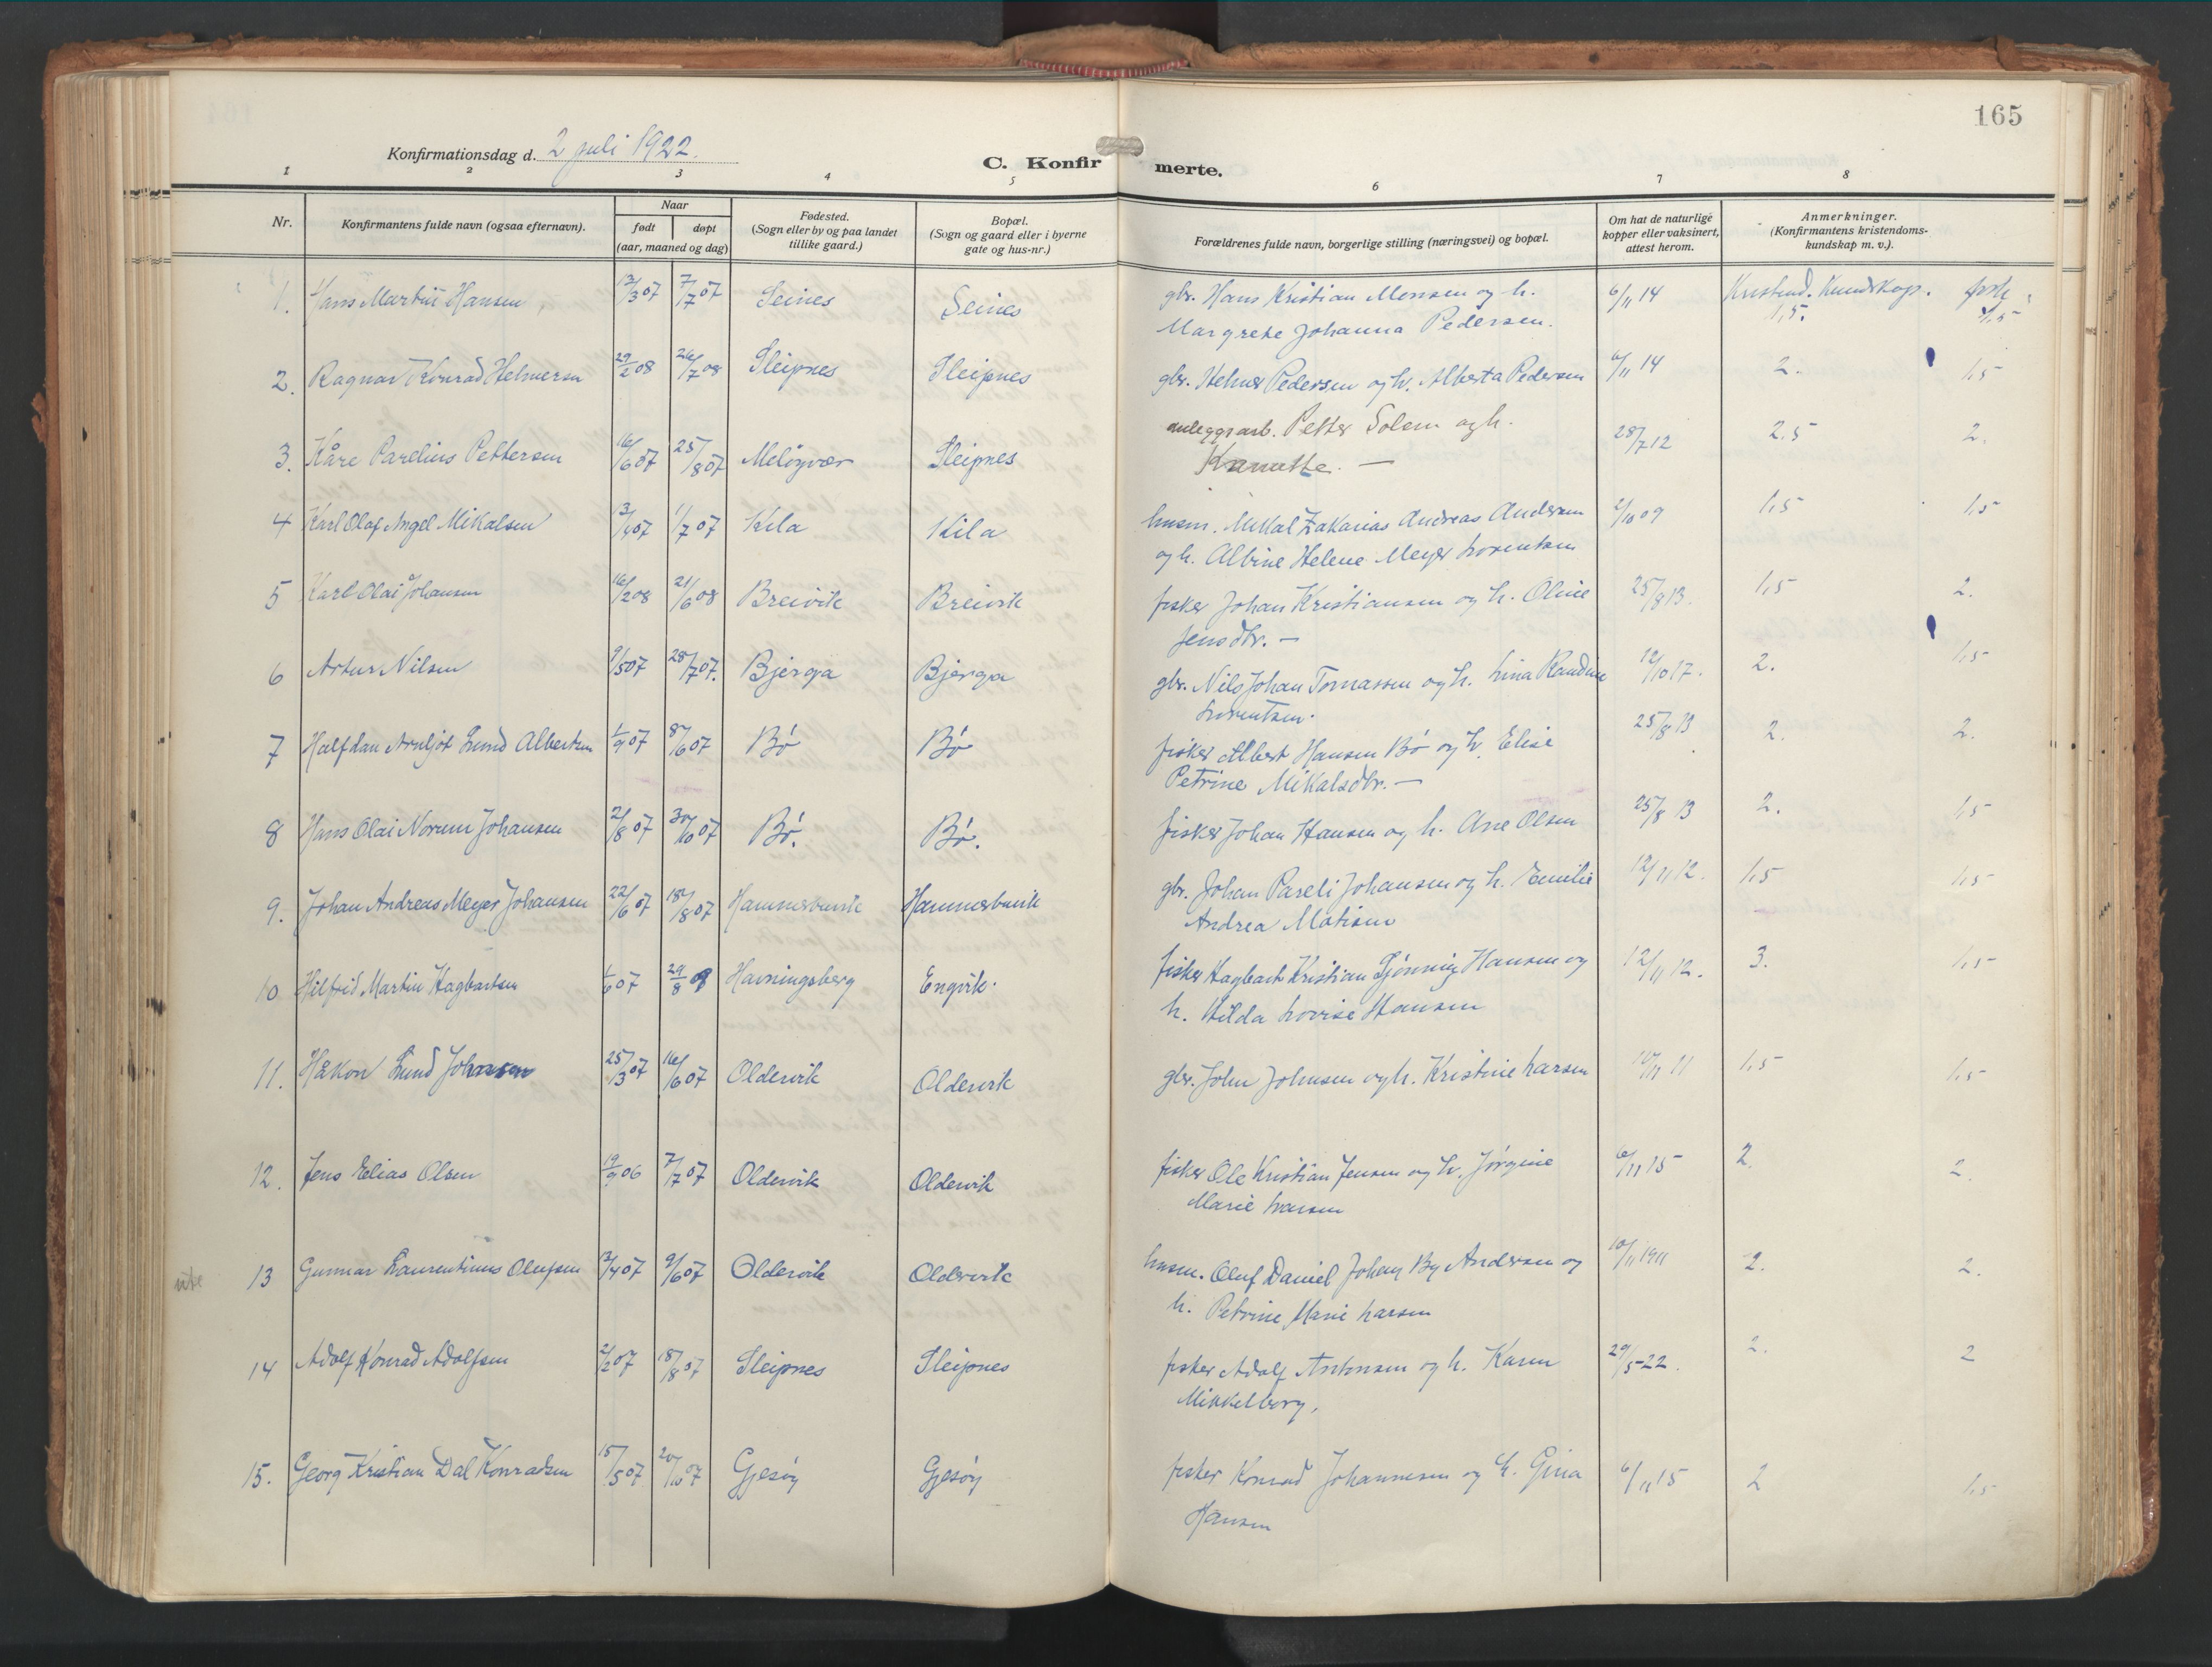 165
Konfirmationsdag d. 2 juli 1922.
C. Konfirmerte.
1 2 3 4 5 6 7 8
Nr.
Konfirmantens fulde navn (ogsaa efternavn).
Naar
født døpt
(aar, maaned og dag)
Fødested.
(Sogn eller by og paa landet
tillike gaard.)
Bopæl.
(Sogn og gaard eller i byerne
gate og hus-nr.)
Forældrenes fulde navn, borgerlige stilling (næringsvei) og bopæl.
Om hat de naturlige
kopper eller vaksinert,
attest herom.
Anmerkninger.
(Konfirmantens kristendoms-
kundskap m. v.).
1. Hans Martin Hansen 12/3 07 7/7 07 Seines Seines gbr. Hans Kristian Monsen og h. 6/11 14 Kristend. Kundskap.
Margrete Johanna Pedersen. 1,5. 1,5
2. Ragnar Konrad Helmersen 29/2 08 26/7 08 Sleipnes Sleipnes gbr. Helmer Pedersen og h. Alberta Pedersen 6/11 14 2. 1,5
3. Kåre Parelius Pettersen 16/6 07 25/8 07 Meløyvær Sleipnes anleggsarb. Petter Solem og h. 28/7 12 2.5 2.
Kanutte. —
4 Karl Olaf Angel Mikalsen 13/4 07 1/7 07 Kila Kila husm. Mikal Zakarias Andreas Andersen 2/10 09 1,5 1,5
og h. Albine Helene Meyer Lorentsen
5 Karl Olai Johansen 16/2 08 21/6 08 Breivik Breivik fisker Johan Kristiansen og h. Oline 25/8 13. 1,5 2.
Jensdtr. —
6 Artur Nilsen 9/5 07 28/7 07. Bjerga Bjerga gbr. Nils Johan Tomassen og h. Lina Randine 12/10 17. 2. 1,5
Lorentsen.
7 Halfdan Arnljot Lund Albertsen 1/9 07 8/6 07 Bø Bø fisker Albert Hansen Bø og h. Elise 25/8 13 2. 2.
Petrine Mikalsdtr. —
8 Hans Olai Norum Johansen 2/8 07 30/10 07 Bø. Bø. fisker Johan Hansen og h. Ane Olsen 25/8 13 2. 1,5
9. Johan Andreas Meyer Johansen 22/6 07 18/8 07 Hammerbuvik Hammerbuvik gbr. Johan Pareli Johansen og h. Emilie 12/11 12. 1,5 1,5
Andrea Matisen
10 Hilfrid Martin Hagbartsen 1/6 07 29/8 Havningsberg Engvik. fisker Hagbart Kristian Tjønning Hansen og 12/11 12. 3. 1,5
h. Hilda Lovise Hansen
11. Håkon Lund Johnsen 25/3 07 16/6 07 Oldervik Oldervik gbr. John Johnsen og h. Kristine Larsen 10/11 11 1,5 1,5
12. Jens Elias Olsen 19/9 06 7/7 07 Oldervik Oldervik fisker Ole Kristian Jensen og h. Jørgine 6/11 15 2. 2.
Marie Larsen
ute 13 Gunnar Laurentinus Olufsen 13/4 07 9/6 07 Oldervik Oldervik husm. Oluf Daniel Johan By Andersen og 10/11 1911 2. 2.
h. Petrine Marie Larsen
14 Adolf Konrad Adolfsen 2/2 07 18/8 07 Sleipnes Sleipnes fisker Adolf Antonsen og h. Karen 29/5-22. 2. 2
Mikkelborg,
15. Georg Kristian Dal Konradsen 15/5 07 20/10 07 Gjesøy Gjesøy fisker Konrad Johannesen og h. Gina 6/11 15 2 1,5
Hansen